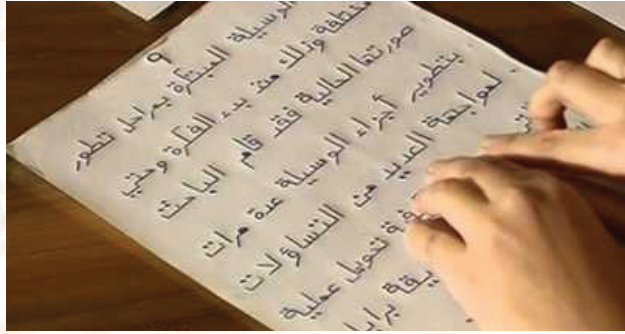 ٩
الوسيلة المبتكرة بمراحل تطور
مختلفة وذلك منذ بدء الفكرة وحتى
صورتها الحالية فقد قام الباحث
بتطوير أجزاء الوسيلة عدة مرات
لمواجهة العديد من التساؤلات
تحويل عملية